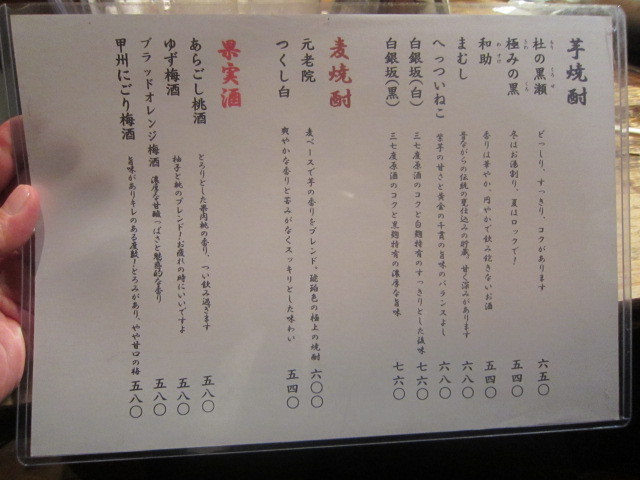 芋焼酎
杜の黒瀬 どっしり、すっきり、コクがあります 六五〇
極みの黒 冬はお湯割り、夏はロックで! 五四〇
和助 香りは華やか、円やかで飲み飽きないお酒 五四〇
まむし 昔ながらの伝統の甕仕込みの貯蔵。甘く深みがあります 六八〇
へっついねこ 紫芋の甘さと黄金の千貫の旨味のバランスよし 六八〇
白銀坂(白) 三七度原酒のコクと白麹特有のすっきりとした後味 七六〇
白銀坂(黒) 三七度原酒のコクと黒麹特有の濃厚な旨味 七六〇
麦焼酎
元老院 麦ベースで芋の香りをブレンド。琥珀色の極上の焼酎 六〇〇
つくし白 爽やかな香りと苦みがなくスッキリとした味わい 五四〇
果実酒
あらごし桃酒 とろりとした果肉桃の香り、つい飲み過ぎます 五八〇
ゆず梅酒 柚子と桃のブレンド!お疲れの時にいいですよ 五八〇
ブラッドオレンジ梅酒 濃厚な甘酸っぱさと魅惑的な香り 五八〇
甲州にごり梅酒 旨味がありキレのある酸味!とろみがあり、やや甘口の梅 五八〇